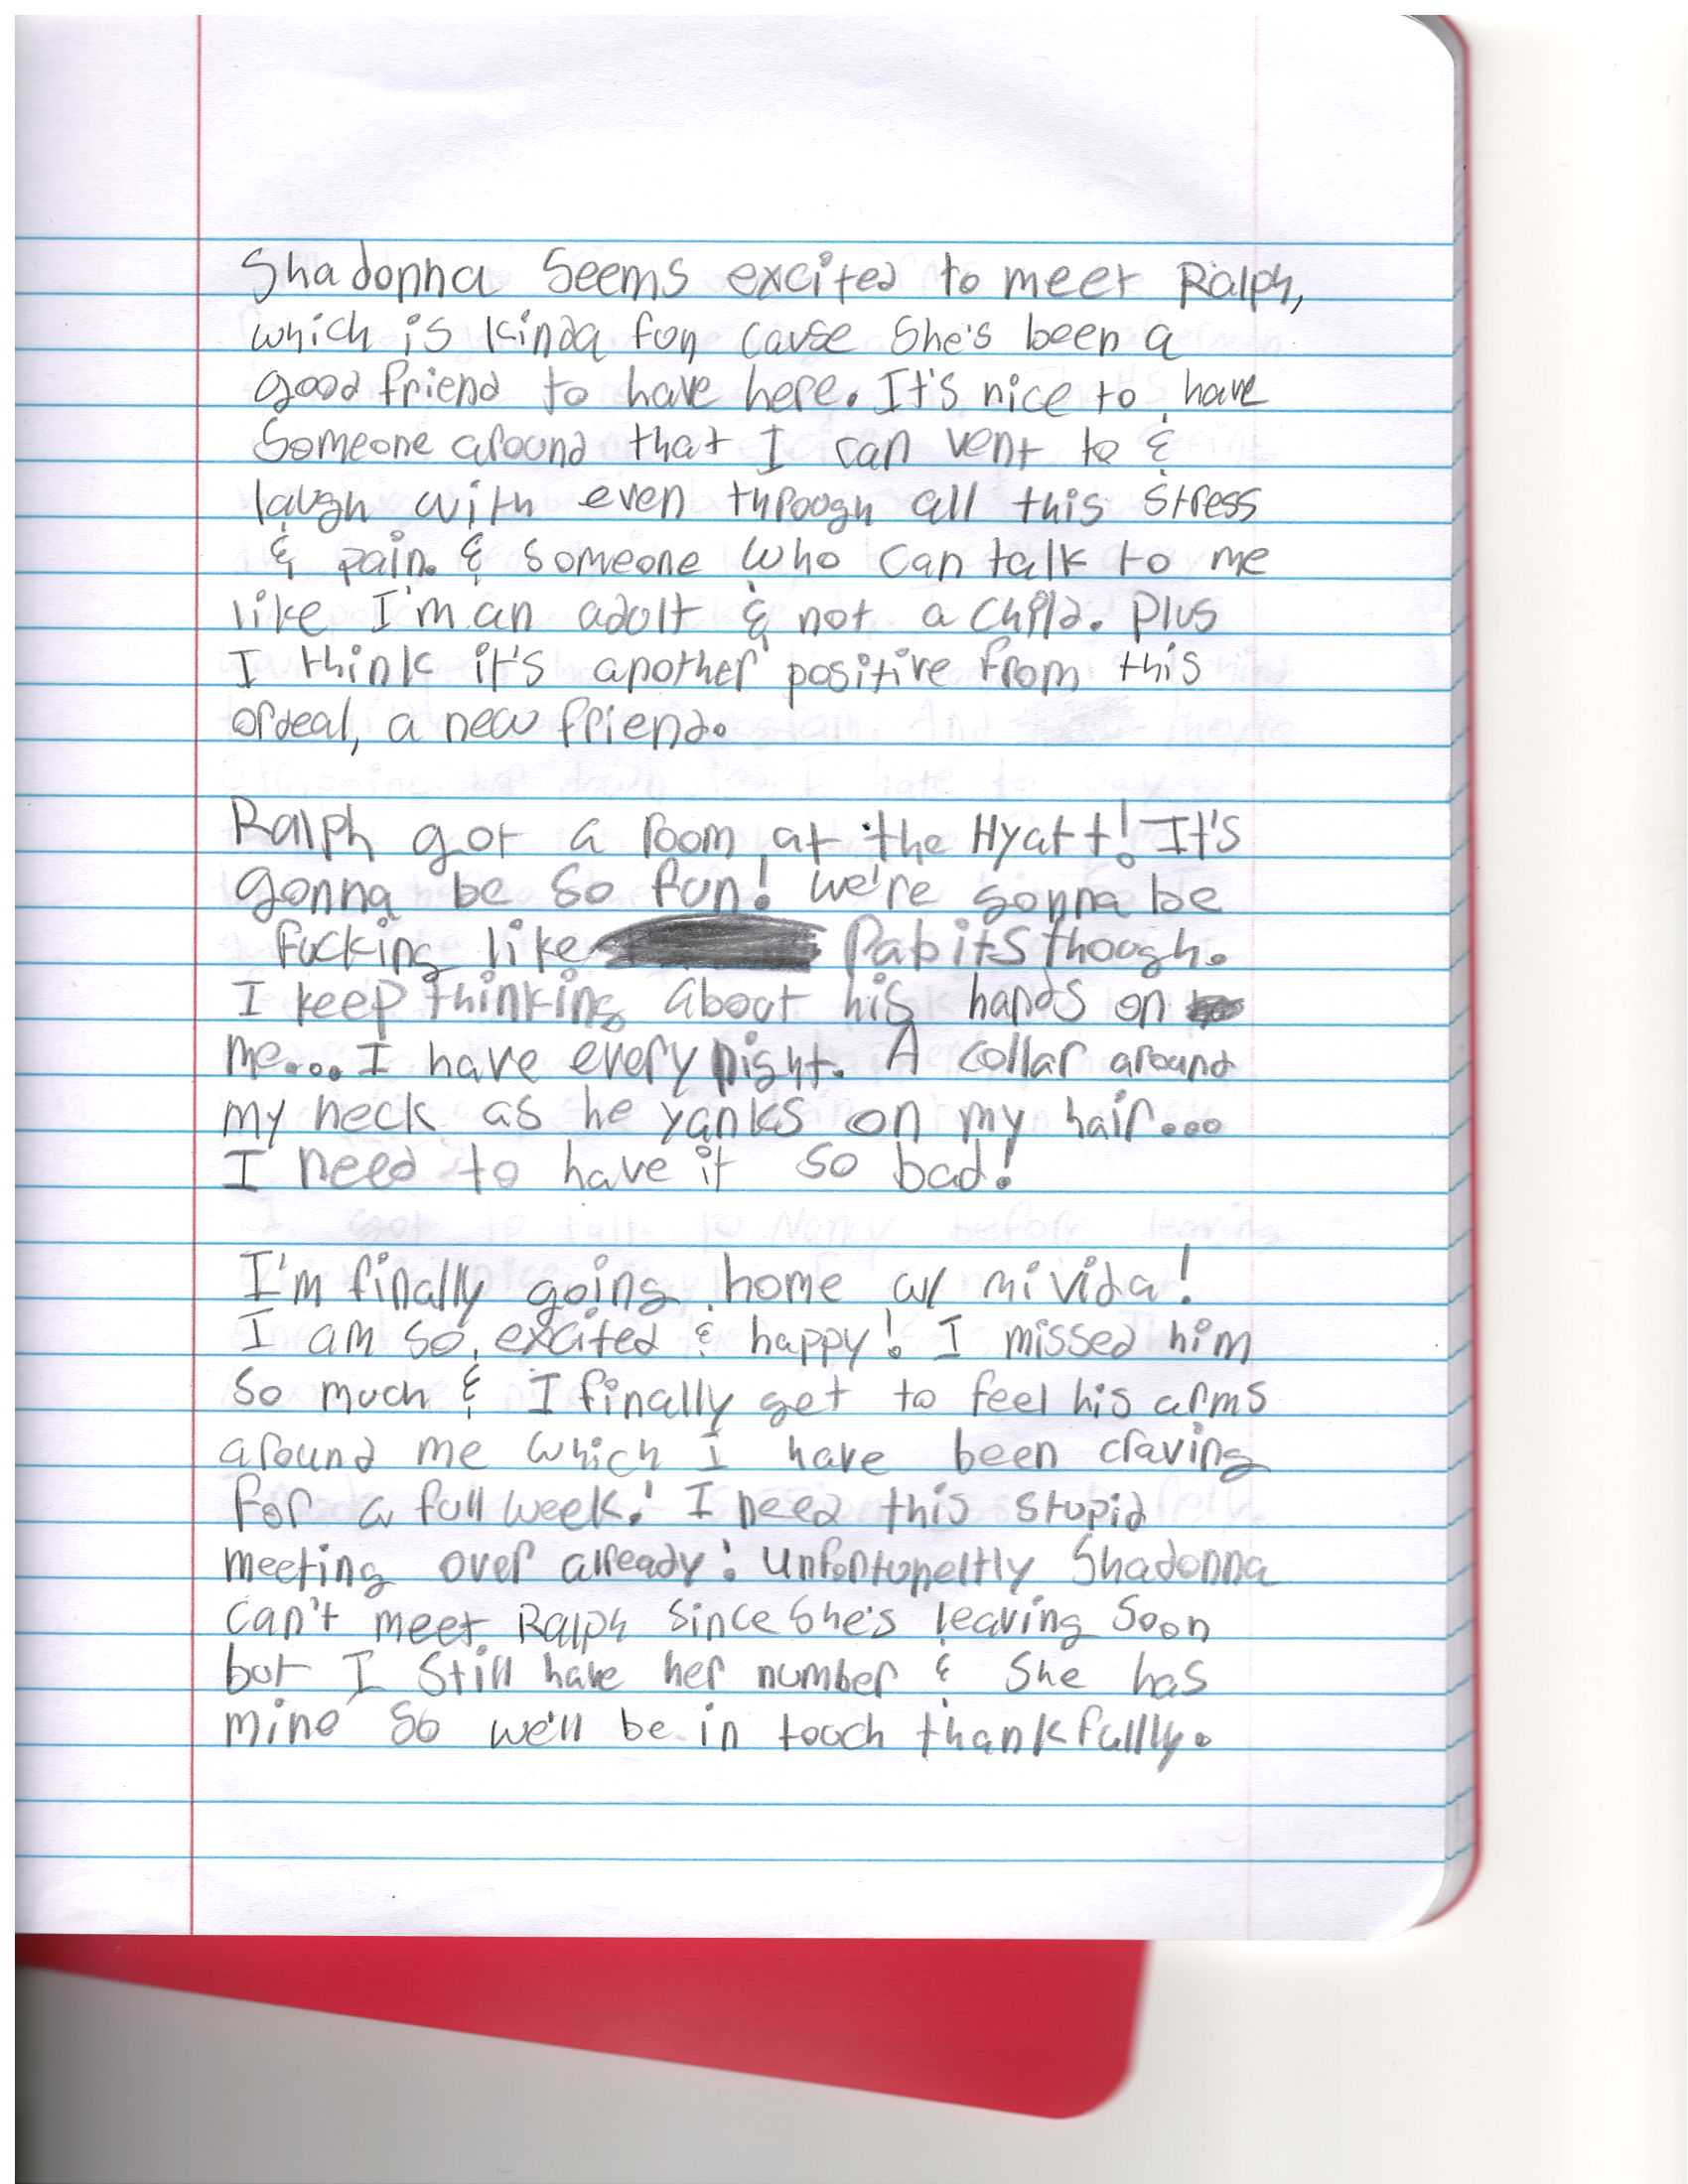 Shadonna seems excited to meet Ralph,
which is kinda fun cause she's been a
good friend to have here. It's nice to have
someone around that I can vent to &
laugh with even through all this stress
& pain. & someone who can talk to me
like I'm an adult & not a child. Plus
I think it's another positive from this
ordeal, a new friend.
Ralph got a room at the Hyatt! It's
gonna be so fun! We're gonna be
fucking like rabits though.
I keep thinking about his hands on
me... I have every night. A collar around
my neck as he yanks on my hair...
I need to have it so bad!
I'm finally going home w/ mi vida!
I am so excited & happy! I missed him
so much & I finally get to feel his arms
around me which I have been craving
for a full week! I need this stupid
meeting over already! Unfortuneltly Shadonna
can't meet Ralph since she's leaving soon
but I still have her number & she has
mine so we'll be in touch thankfullly.